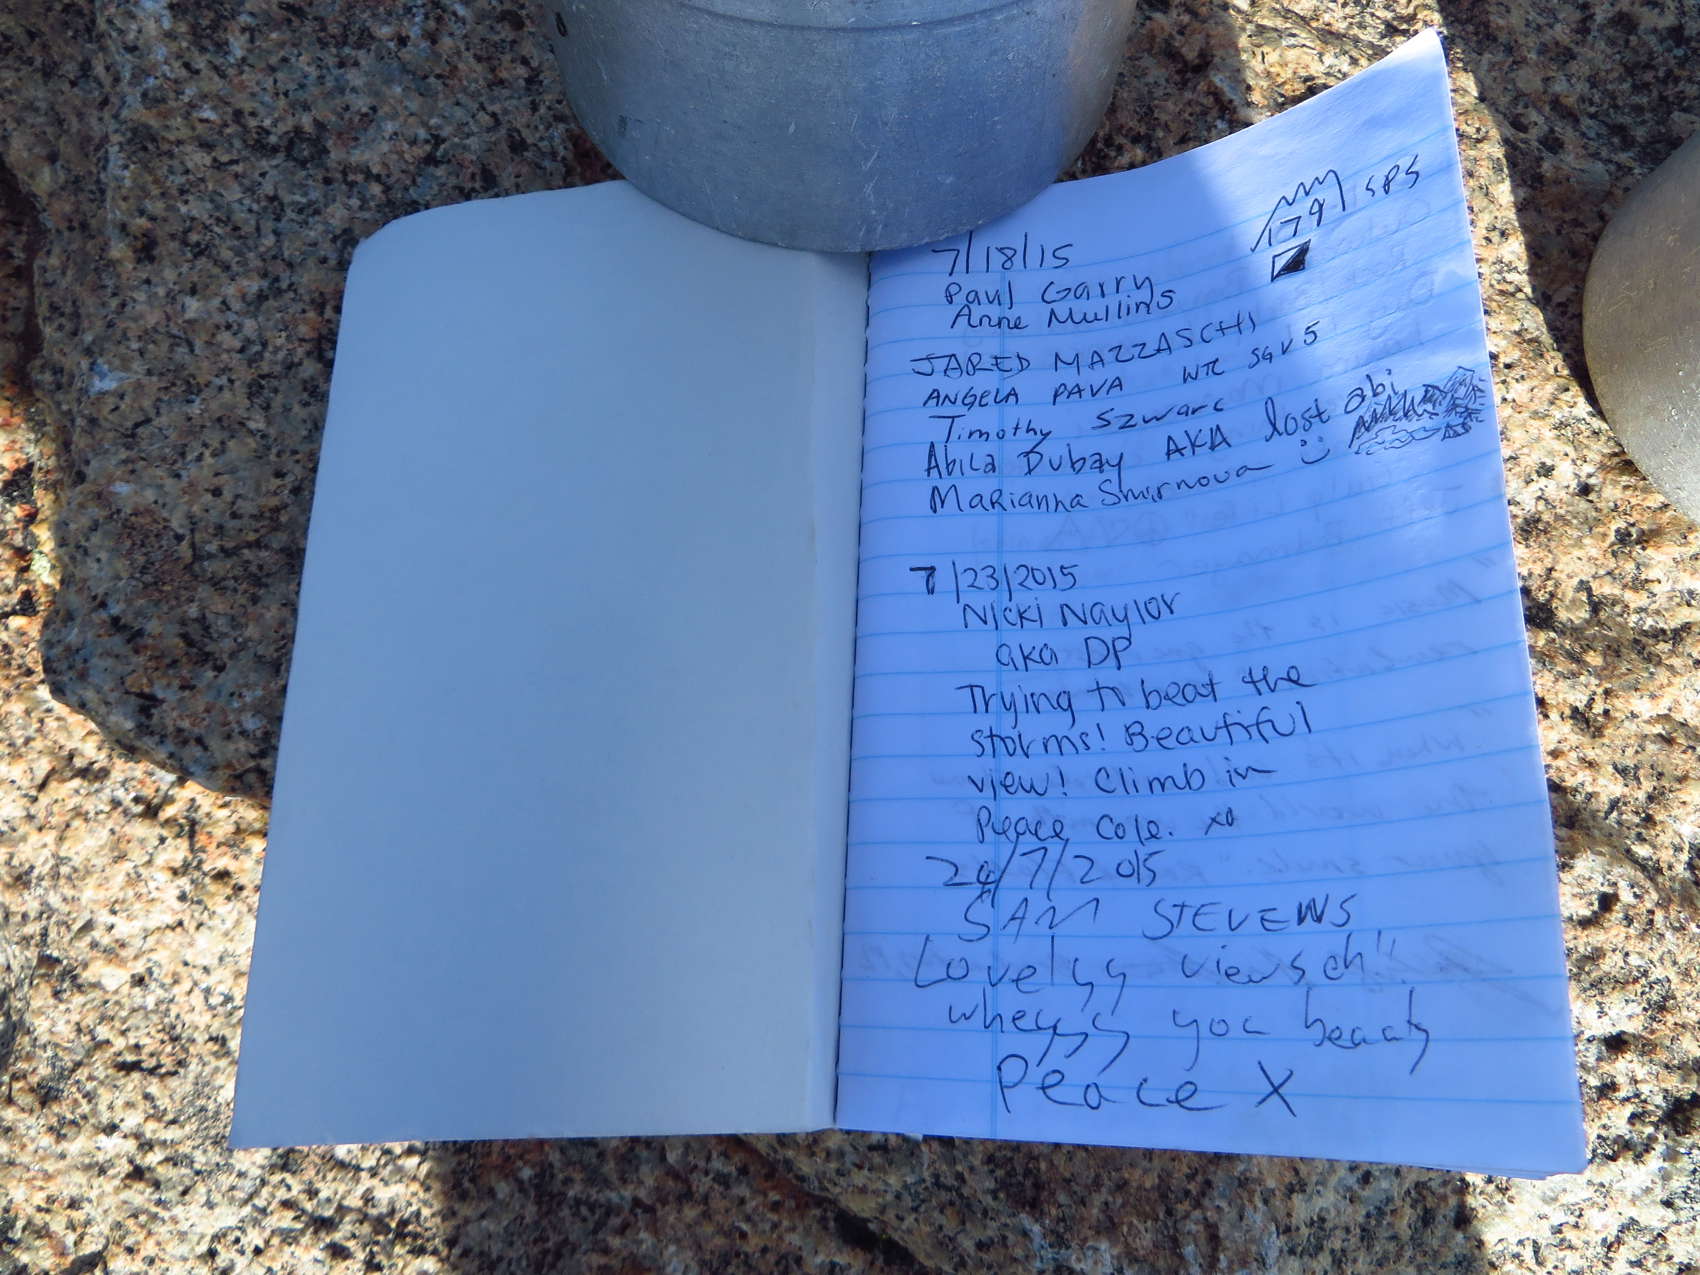 SPS
179
7/18/15
Paul Garry
Anne Mullins
JARED MAZZASCHI
ANGELA PAVA WTC SGV 5
Timothy Szwarc
Abila Dubay AKA lost abi
Marianna Smirnova
7/23/2015
Nicki Naylor
aka DP
Trying to beat the
storms! Beautiful
view! Climb in
Peace Cole. xo
24/7/2015
SAM STEVENS
Lovelyy views
you beauty
Peace X